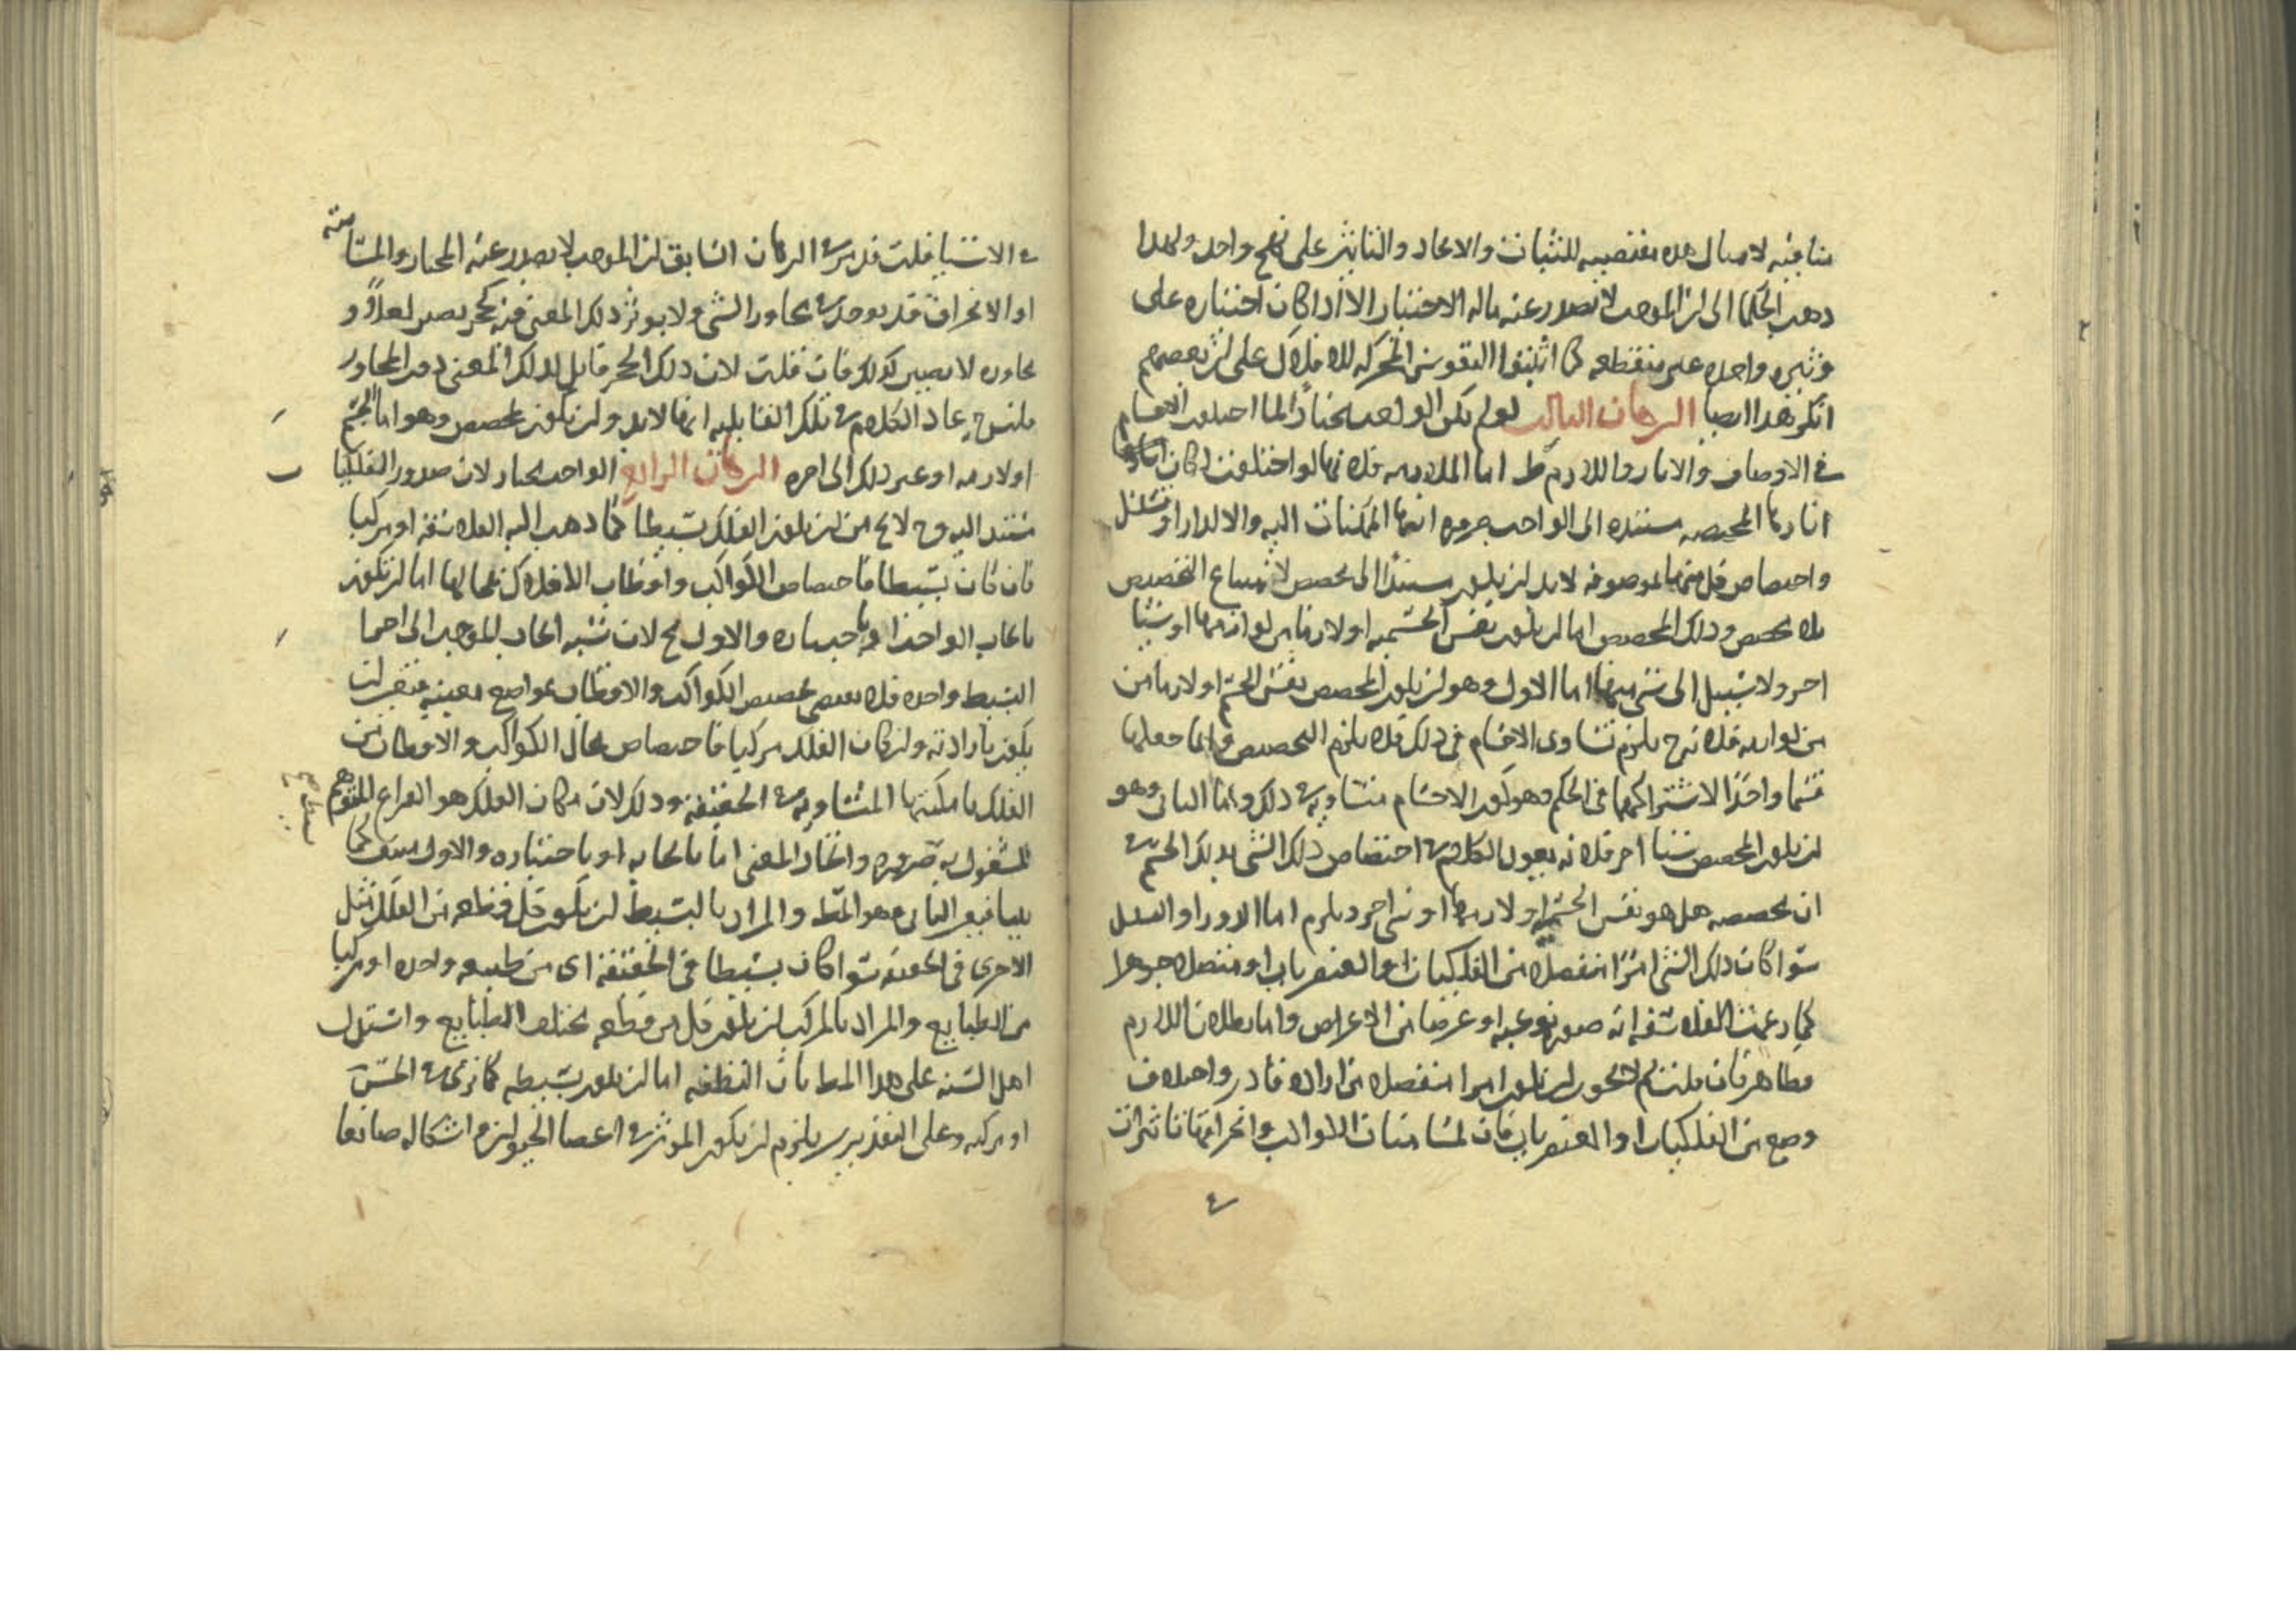 منافيه لامثال هذه مقتضيه للثبات والايجاد والتاثير على نهج واحد ولهذا
ذهب الحكما الى ان الموجب لا يصدر عنه ماله الاختيار الا اذا كان اختياره على
وتيره واحده غير منقطعه كما اثبتوا النفوس المحركه للافلاك على ان بعضهم
انكر هذا ايضا البرهان الثالث لو لم يكن الواجب مختارًا لما اختلفت الاجسام
في الاوصاف والاثار واللازم ط اما الملازمه فلانها لو اختلفت لكان
اثارها المختصه مستنده الى الواجب ضروره انتها الممكنات اليه والا لدار او تسلسل
واختصاص كل منها لموصوفه لابد ان يكون مستندًا الى مخصص لامتناع التخصيص
بلا مخصص وذلك المخصص اما ان يكون نفس الجسميه او لازما من لوازمها او شيئا
اخر ولا سبيل الى شي منها اما الاول وهو ان يكون المخصص نفس الجسم او لازما من
من لوازمه فلانه ح يلزم تساوى الاجسام في ذلك فلا يلزم التخصيص وانما جعلهما
قسما واحدًا لاشتراكهما في الحكم وهو كون الاجسام متساويه في ذلك واما الثانى وهو
ان يكون المخصص شيئا اخر فلانه يعود الكلام في اختصاص ذلك الشى بذلك الجسم في
ان مخصصه هل هو نفس الجسم او لازمها او شى اخر ويلزم اما الدور او التسلسل
سوا كان ذلك الشى امرًا منفصلا من الفلكيات او العنصريات او متصلا جوهرا
كما زعمت الفلاسفه انه صوره نوعيه او عرضا من الاعراض واما بطلان اللازم
فظاهر فان قلت لم لا يجوز ان يكون امرا منفصلا من اراده قادر واختلاف
وضع من الفلكيات او العنصريات فان لمسامتات الكواكب وانحرافاتها تاثيرات
في الاشيا قلت قد مر في البرهان السابق ان الموجب لا يصدر عنه المختار والمسامته
او الانحراف قد يوجد في مجاور الشى ولا يوثر ذلك المعنى فيه كحجر يصير لعلاً و
مجاوره لا يصير كذلك فان قلت لان ذلك الحجر قابل لذلك المعنى دون المجاور
قلنا ح عاد الكلام في تلك القابليه انها لابد وان تكون لمخصص وهو اما الجسم
او لازمه او غير ذلك الى اخره البرهان الرابع الواجب مختار لان صدور الفلكيات
مستند اليه وح لا يخ من ان يكون الفلك بسيطا كما ذهب اليه الفلاسفه او مركبا
فان كان بسيطا فاختصاص الكواكب واقطاب الافلاك بمحالها اما ان يكون
بايجاب الواحد او باختياره والاول مح لان نسبه ايجاب الموجب الى اجزا
البسيط واحده فلا يقتضى تخصيص الكواكب والاقطاب بمواضع معينه فتعين ان
يكون بارادته وان كان الفلك مركبا فاختصاص محال الكواكب والاقطاب من
الفلك بامكنتها المتساويه في الحقيقه وذلك لان مكان الفلك هو الفراغ المتوهم
المشغول به ضروره واتحاد المعنى اما بايجابه او باختياره والاول منتف كما
بينا فتعين الثانى وهو المط والمراد بالبسيط ان يكون كل قطعه من الفلك مثل
الاخرى في الحقيقه سوا كان بسيطا في الحقيقه اى من طبيعه واحده او مركبا
من الطبايع والمراد بالمركب ان يكون كل من قطعه مختلف الطبايع واستدل
اهل السنه على هذا المط بان النطفه اما ان يكون بسيطه كما نرى في الحس
او مركبه وعلى التقديرين يلزم ان يكون الموثر في اعضا الحيوان واشكاله صانعا